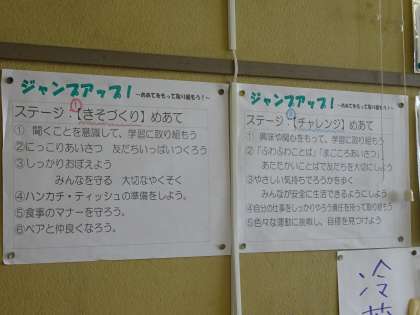 ジャンプアップ！ ～めあてをもって取り組もう！～
ステージ①【きそづくり】めあて
① 聞くことを意識して、学習に取り組もう
②にっこりあいさつ 友だちいっぱいつくろう
③しっかりおぼえよう
みんなを守る 大切なやくそく
④ハンカチ・ティッシュの準備をしよう。
⑤食事のマナーを守ろう。
⑥ペアと仲良くなろう。
ジャンプアップ！ ～めあてをもって取り組もう！～
ステージ②【チャレンジ】めあて
① 興味や関心をもって、学習に取り組もう
②「ふわふわことば」「まごころあいさつ」
あたたかいことばで友だちを大切にしよう
③やさしい気持ちでろうかを歩く
みんなが安全に生活できるようにしよう
④自分の仕事をしっかりやろう責任を持って取り組もう
⑤色々な運動に挑戦し、目標を見つけよう
冷